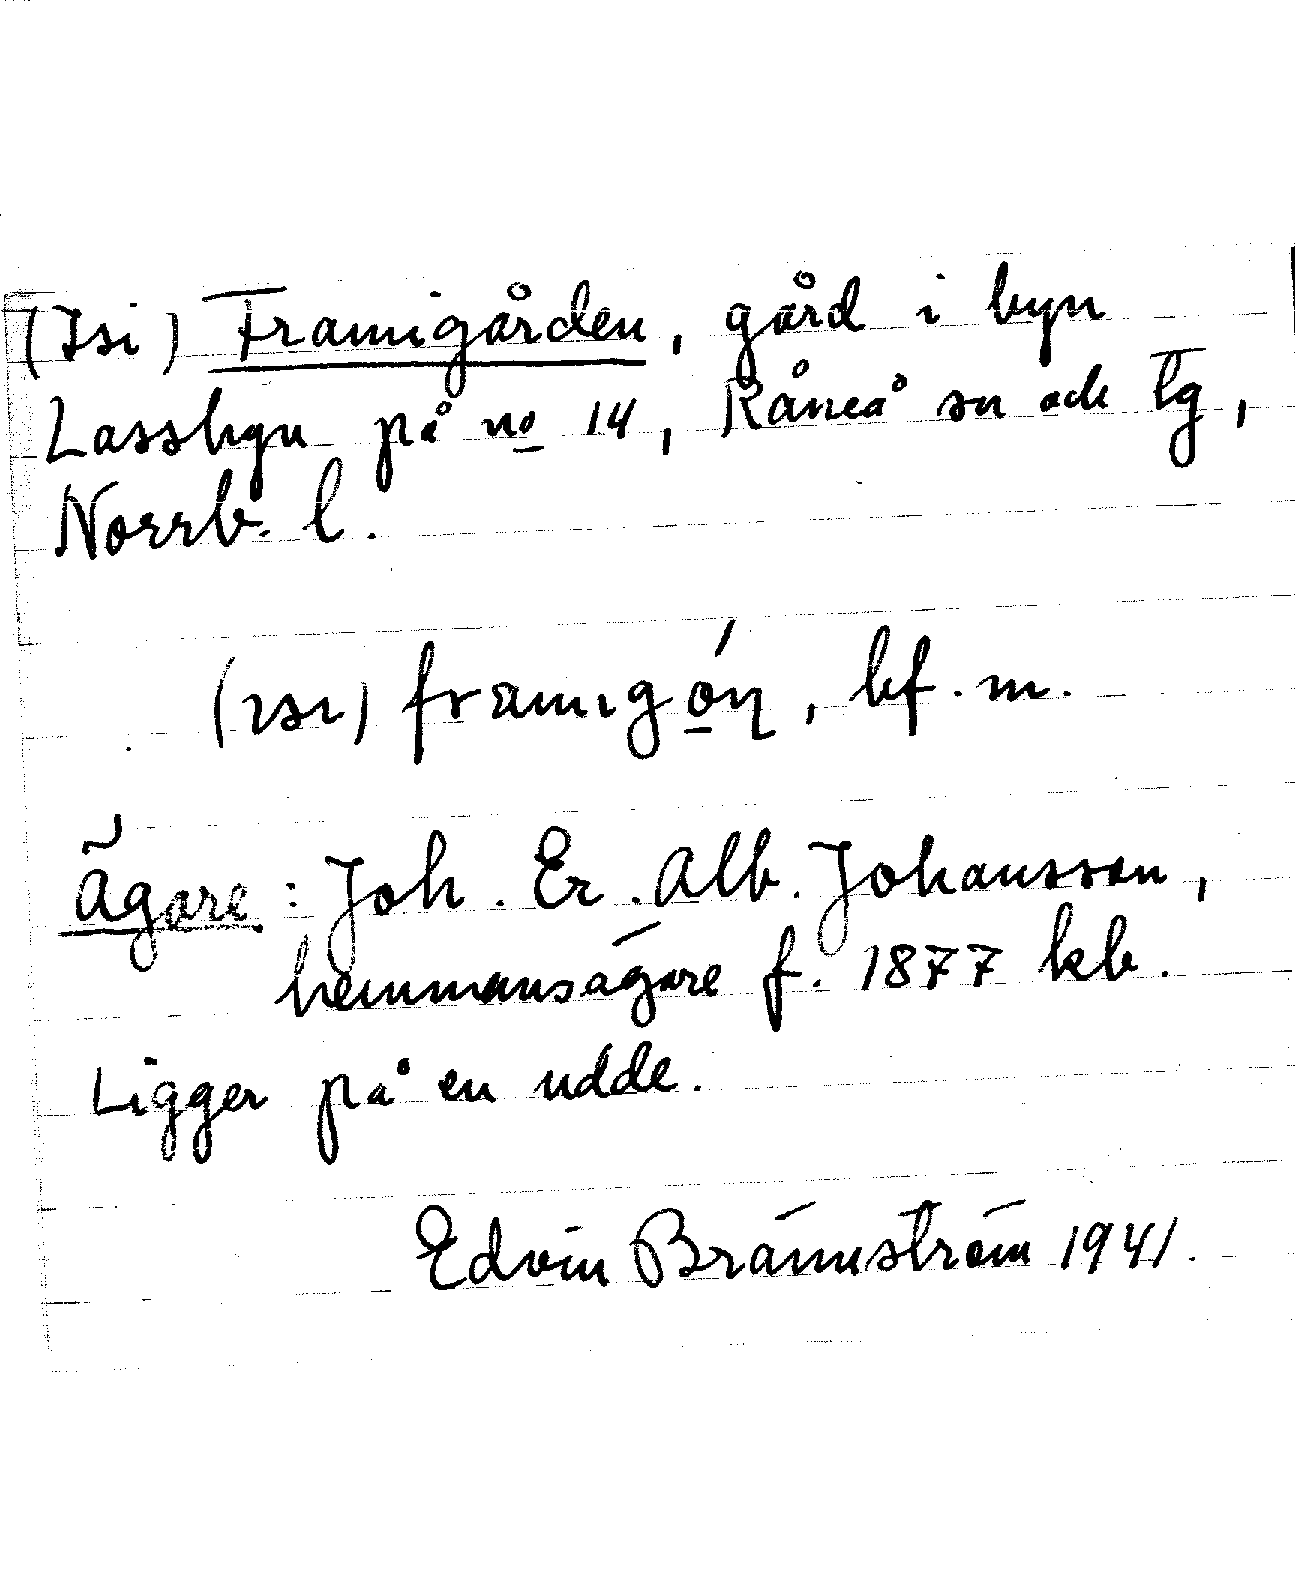 (Isi) Framigården, gård i byn
Lassbyn på no 14, Råneå sn och tg,
Norrb. l.
(ısı) framıgó̱ɳ, bf. m.
Ägare: Joh. Er. Alb. Johansson,
hemmansägare f. 1877 kb.
Ligger på en udde.
Edvin Brännström 1941.